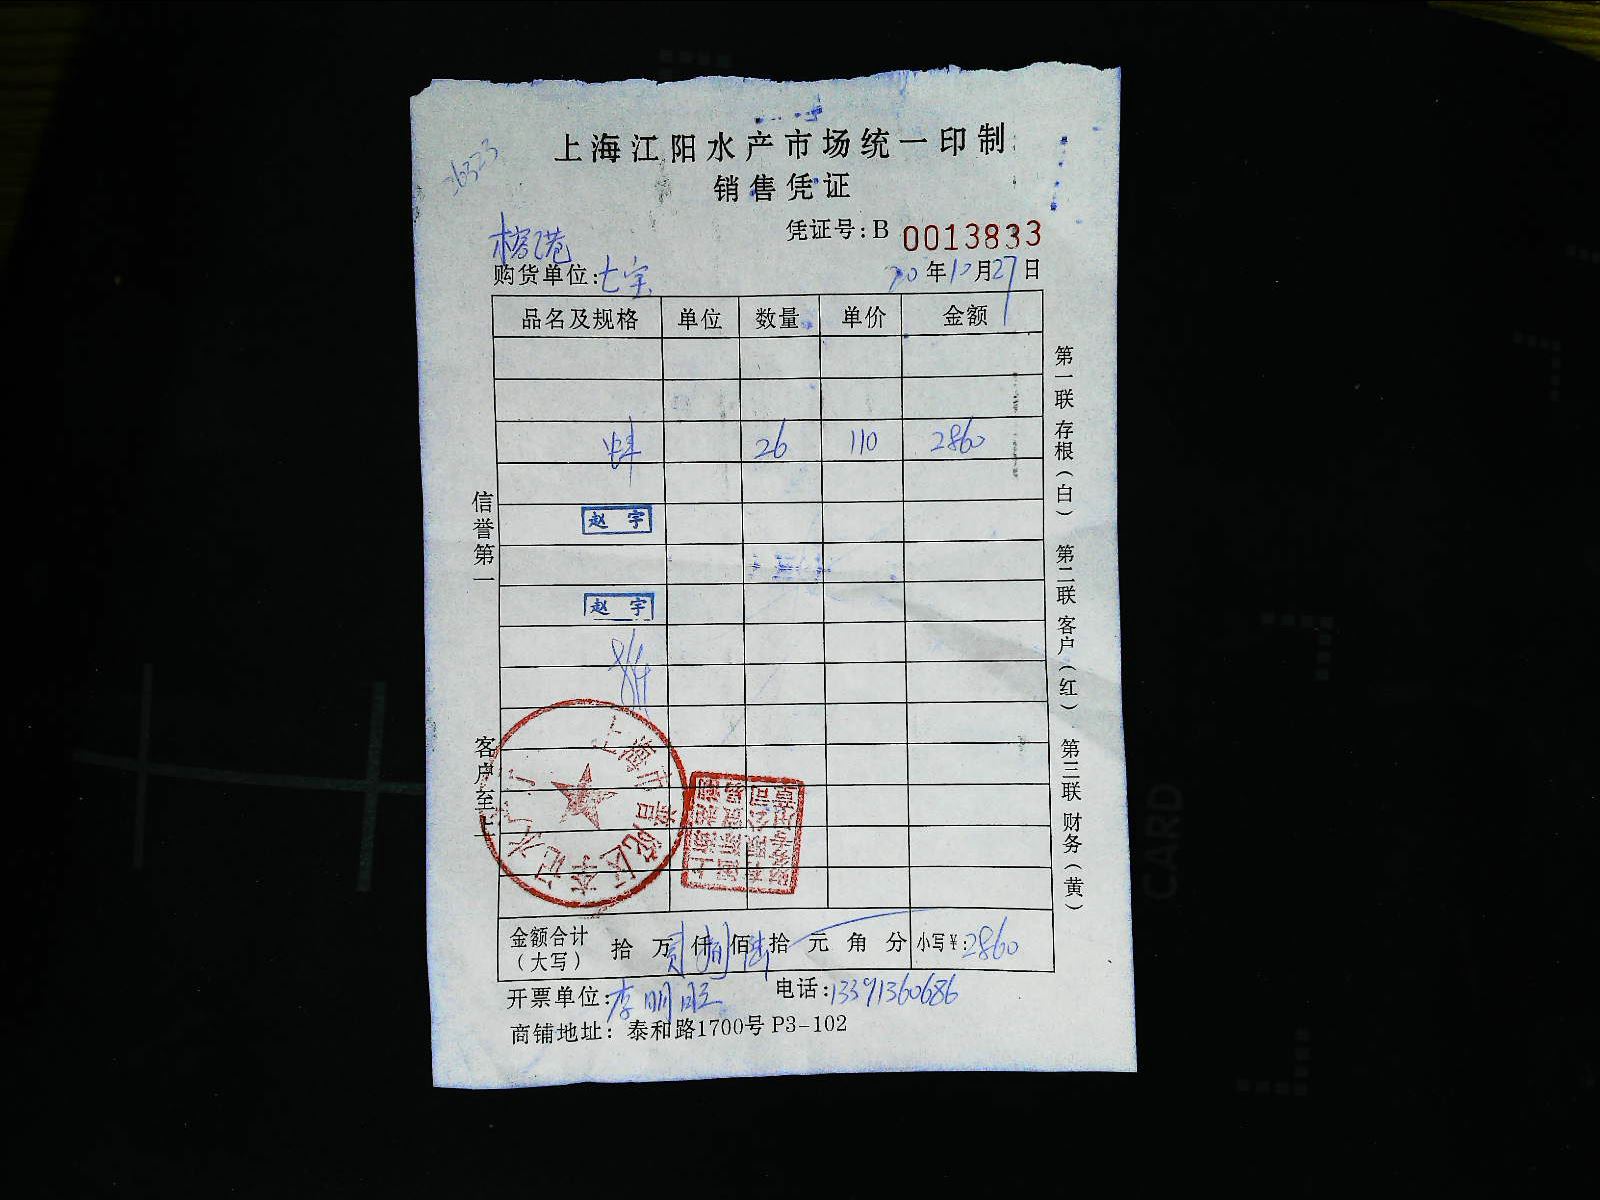 上海江阳水产市场统一印制
销售凭证
36323
凭证号:B 0013833
榕港
购货单位:七宝
20年10月27日
品名及规格 单位 数量 单价 金额
蚌 26 110 2860
赵宇
赵宇
信誉第一
客户至上
第一联 存根(白) 第二联 客户(红) 第三联 财务(黄)
金额合计(大写) 拾 万贰仟捌佰陆拾 元 角 分 小写¥:2860
开票单位:李明旺 电话:13391360686
商铺地址: 泰和路1700号 P3-102
CARD